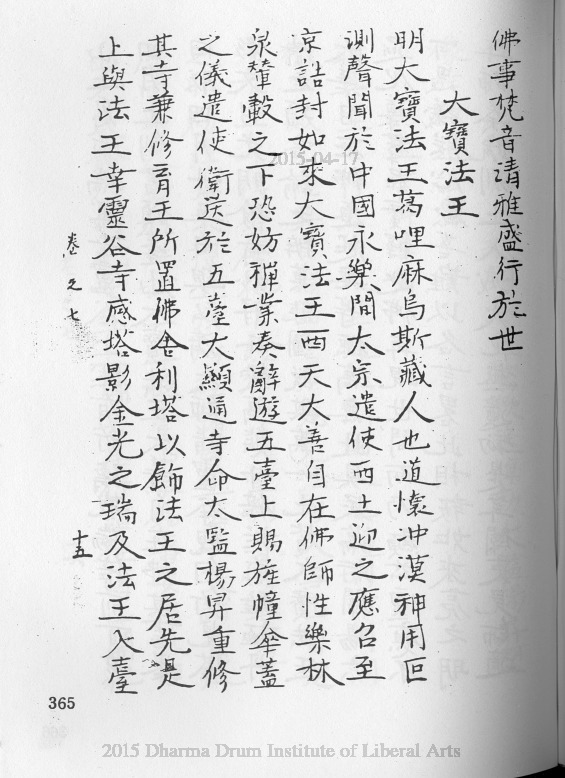 佛事梵音清雅盛行於世
大寶法王
明大寶法王葛哩麻烏斯藏人也道懷冲漠神用叵
測聲聞於中國永樂間太宗遣使西土迎之應召至
京詔封如來大寶法王西天大善自在佛師性樂林
泉輦轂之下恐妨禪業奏辭遊五臺上賜旌幢傘蓋
之儀遣使衛送於五臺大顯通寺命太監楊昇重修
其寺兼修育王所置佛舍利塔以飾法王之居先是
上與法王幸靈谷寺感塔影金光之瑞及法王入臺
卷之七
十五
365
2015-04-17
2015 Dharma Drum Institute of Liberal Arts